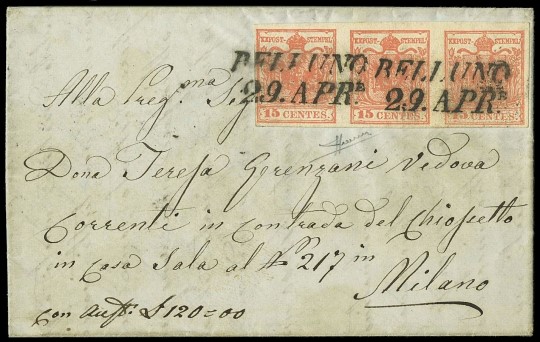 KKPOST-STEMPEL KKPOST-STEMPEL KKPOST-STEMPEL
BELLUNO BELLUNO
29. APRE 29. APRE
15 CENTES. 15 CENTES. 15 CENTES.
Alla Preg.ma Sig
Dona Teresa Gorenzani Vedova
Correnti in Contrada del Chiossetto
in Casa Sala al No 217 in
Milano
con Aust: £ 120=00